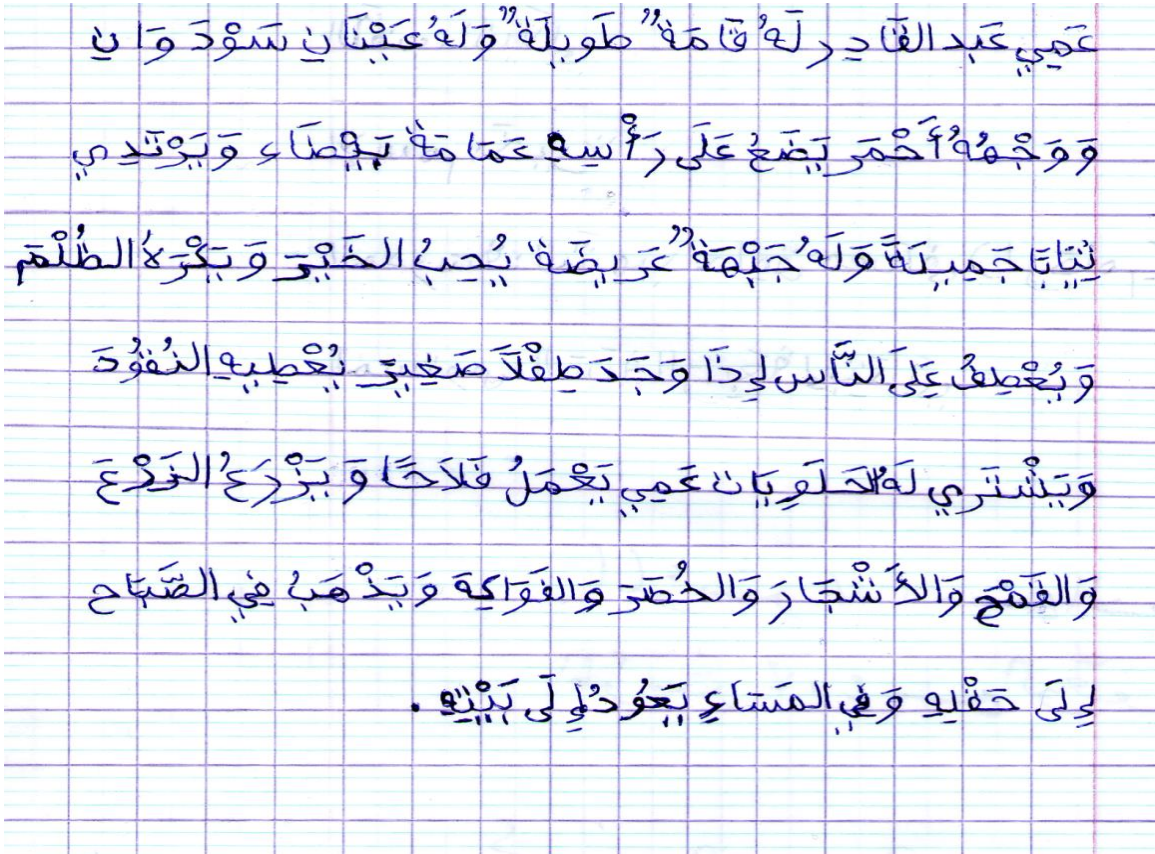 عَمِي عَبد القَادِر لَهُ قَامَةٌ طَوِيلَةٌ وَلَهُ عَيْنَانِ سَوْدَوَانِ
وَوَجْهُهُ أَحْمَر يَضَعُ عَلَى رَأْسِهِ عَمَامَةً بَيْضَاء وَيَرْتَدِي
ثِيَابًا جَمِيلَةً وَلَهُ جَبْهَةٌ عَرِيضَةٌ يُحِبُ الخَيْرَ وَيَكْرَهُ الظُلْمَ
وَيُعْطِفُ عَلَى النَّاسِ إِذَا وَجَدَ طِفْلاً صَغِيرً يُعْطِيهِ النُقُودَ
وَيَشْتَرِي لَهُ الحَلَوِيَات عَمِي يَعْمَلُ فَلاَحًا وَيَزْرَعُ الزَرْعَ
وَالقَمْحِ وَالأَشْجَارَ وَالخُضَرَ وَالفَوَاكِهَ وَيَذْهَبُ فِي الصَّبَاحِ
إِلَى حَقْلِهِ وَفِي المَسَاءِ يَعُودُ إِلَى بَيْتِهِ .